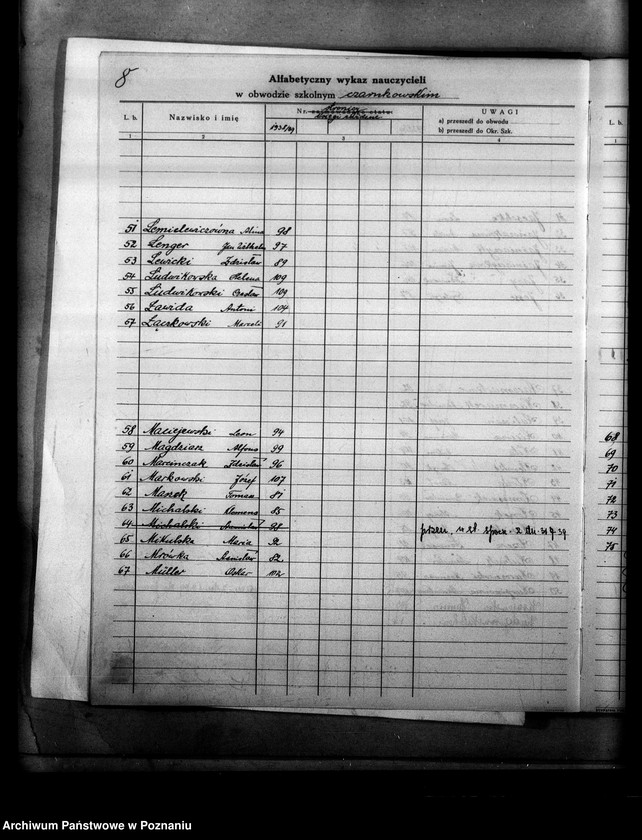 8
Alfabetyczny wykaz nauczycieli
w obwodzie szkolnym czarnkowskim
L. b. Nazwisko i imię Nr. U W A G I
a) przeszedł do obwodu
b) przeszedł do Okr. Szk.
1938/39
1 2 3 4
51 Lemielewiczówna Alina 98
52 Lenger Jan 97
53 Lewicki Zdzisław 89
54 Ludwikowska Helena 109
55 Ludwikowski Czesław 109
56 Ławida Antoni 104
57 Łączkowski Marceli 91
58 Maciejewski Leon 94
59 Magdziarz Alfons 99
60 Marcinczak Zdzisław 96
61 Markowski Józef 107
62 Maszek Tomasz 81
63 Michalski Klemens 85
64 Michalski 98
65 Mikulska Maria 92
66 Mrówka Stanisław 82
67 Müller Oskar 102
L. b.
1
68
69
70
71
72
73
74
75
Archiwum Państwowe w Poznaniu